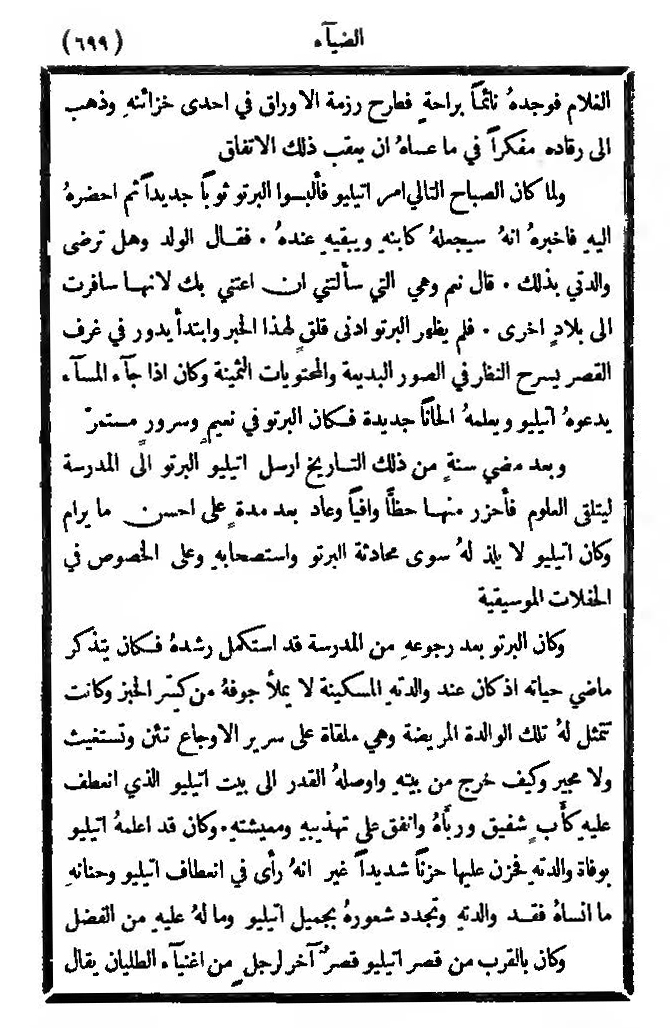 الضيآء
(٦٩٩)
الغلام فوجدهُ نائماً براحةٍ فطرح رزمة الاوراق في احدى خزائنهِ وذهب
الى رقاده مفكراً في ما عساهُ ان يعقب ذلك الاتفاق
ولما كان الصباح التالي امر اتيليو فألبسوا البرتو ثوباً جديداً ثم احضرهُ
اليهِ فاخبرهُ انهُ سيجعلهُ كابنهِ ويبقيهِ عندهُ . فقال الولد وهل ترضى
والدتي بذلك . قال نعم وهي التي سألتني ان اعتني بك لانها سافرت
الى بلادٍ اخرى . فلم يظهر البرتو ادنى قلقٍ لهذا الخبر وابتدأ يدور في غرف
القصر يسرح النظار في الصور البديعة والمحتويات الثمينة وكان اذا جآء المسآء
يدعوهُ اتيليو ويعلمهُ الحاناً جديدة فكان البرتو في نعيمٍ وسرورٍ مستمرّ
وبعد مضي سنةٍ من ذلك التاريخ ارسل اتيليو البرتو الى المدرسة
ليتلقى العلوم فأحزر منها حظّاً وافياً وعاد بعد مدةٍ على احسن ما يرام
وكان اتيليو لا يلذ لهُ سوى محادثة البرتو واستصحابهِ وعلى الخصوص في
الحفلات الموسيقية
وكان البرتو بعد رجوعهِ من المدرسة قد استكمل رشدهُ فكان يتذكر
ماضي حياته اذ كان عند والدتهِ المسكينة لا يملأ جوفهُ من كِسَر الخبز وكانت
تتمثل لهُ تلك الوالدة المريضة وهي ملقاة على سرير الاوجاع تئن وتستغيث
ولا مجير وكيف خرج من بيتهِ واوصلهُ القدر الى بيت اتيليو الذي انعطف
عليهِ كأبٍ شفيق وربّاهُ وانفق على تهذيبهِ ومعيشتهِ . وكان قد اعلمهُ اتيليو
بوفاة والدتهِ فحزن عليها حزناً شديداً غير انهُ رأى في انعطاف اتيليو وحنانهِ
ما انساهُ فقد والدتهِ وتجدد شعورهُ بجميل اتيليو وما لهُ عليهِ من الفضل
وكان بالقرب من قصر اتيليو قصرٌ آخر لرجلٍ من اغنيآء الطليان يقال